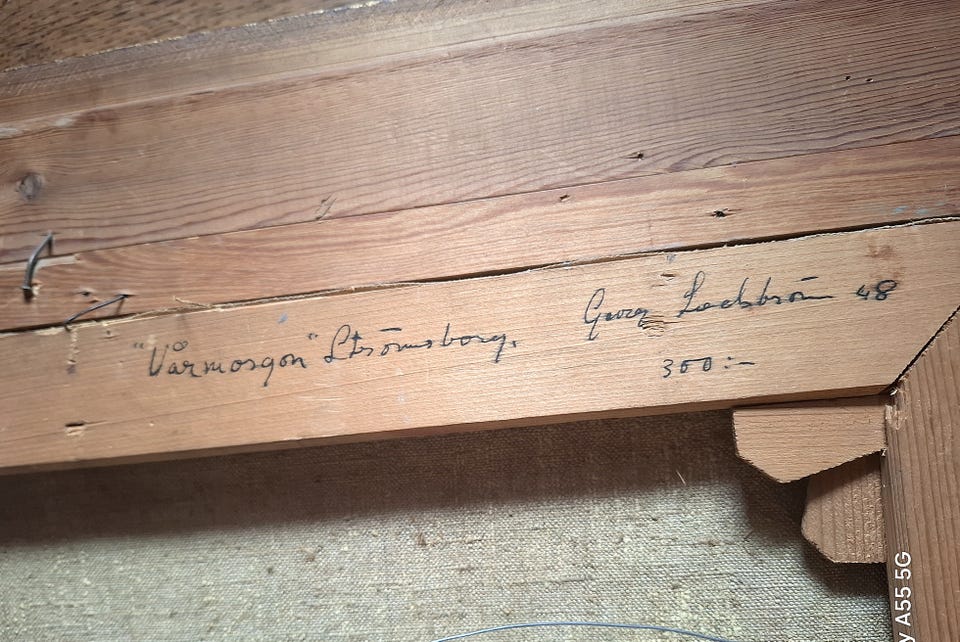 "Vårmorgon" Strömsborg. Georg 48
300:-
A55 5G